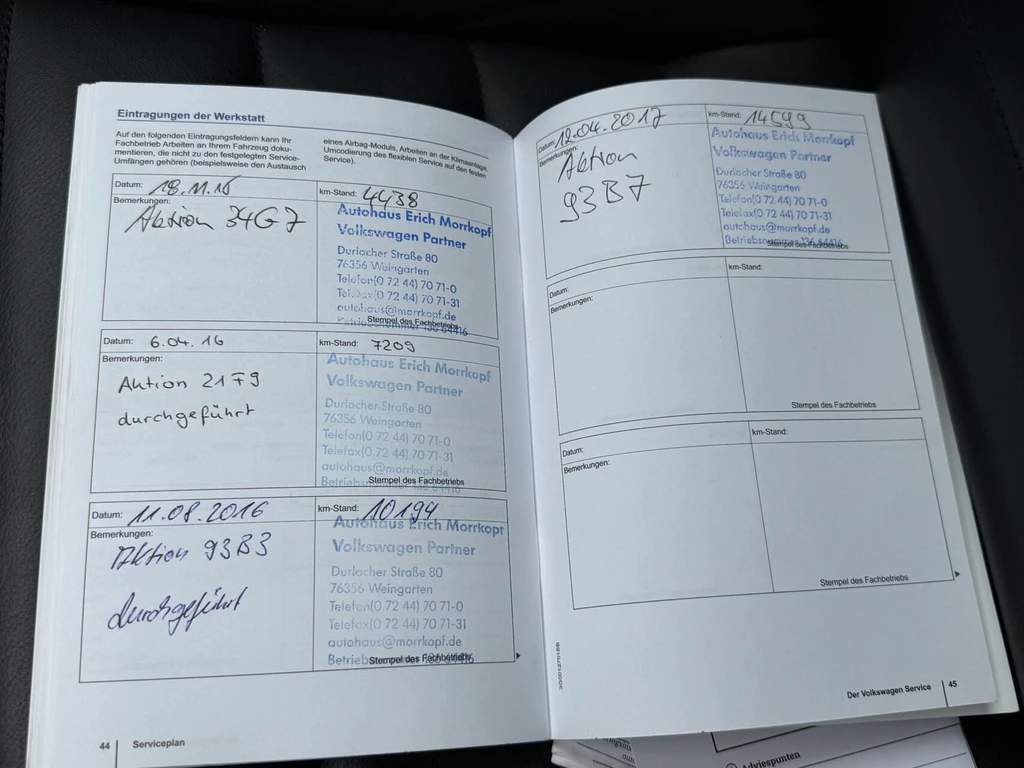 Eintragungen der Werkstatt
Auf den folgenden Eintragungsfeldern kann Ihr
Fachbetrieb Arbeiten an Ihrem Fahrzeug doku-
mentieren, die nicht zu den festgelegten Service-
Umfängen gehören (beispielsweise den Austausch
eines Airbag-Moduls, Arbeiten an der Klimaanlage,
Umcodierung des flexiblen Service auf den festen
Service).
Datum: 18.11.15
km-Stand: 4438
Bemerkungen:
Aktion 34G7
Autohaus Erich Morrkopf
Volkswagen Partner
Durlacher Straße 80
76356 Weingarten
Telefon(0 72 44) 70 71-0
Telefax(0 72 44) 70 71-31
autohaus@morrkopf.de
Betriebsnummer 136 64416
Stempel des Fachbetriebs
Datum: 6.04.16
km-Stand: 7209
Bemerkungen:
Aktion 21F9
durchgeführt
Autohaus Erich Morrkopf
Volkswagen Partner
Durlacher Straße 80
76356 Weingarten
Telefon(0 72 44) 70 71-0
Telefax(0 72 44) 70 71-31
autohaus@morrkopf.de
Stempel des Fachbetriebs
Datum: 11.08.2016
km-Stand: 10194
Bemerkungen:
Aktion 93B3
durchgeführt
Autohaus Erich Morrkopf
Volkswagen Partner
Durlacher Straße 80
76356 Weingarten
Telefon(0 72 44) 70 71-0
Telefax(0 72 44) 70 71-31
autohaus@morrkopf.de
Stempel des Fachbetriebs
44 Serviceplan
Datum: 12.04.2017
km-Stand: 14599
Bemerkungen:
Aktion
93B7
Autohaus Erich Morrkopf
Volkswagen Partner
Durlacher Straße 80
76356 Weingarten
Telefon(0 72 44) 70 71-0
Telefax(0 72 44) 70 71-31
autohaus@morrkopf.de
Betriebsnummer 136 64416
Stempel des Fachbetriebs
Datum:
km-Stand:
Bemerkungen:
Stempel des Fachbetriebs
Datum:
km-Stand:
Bemerkungen:
Stempel des Fachbetriebs
Der Volkswagen Service 45
Adviespunten